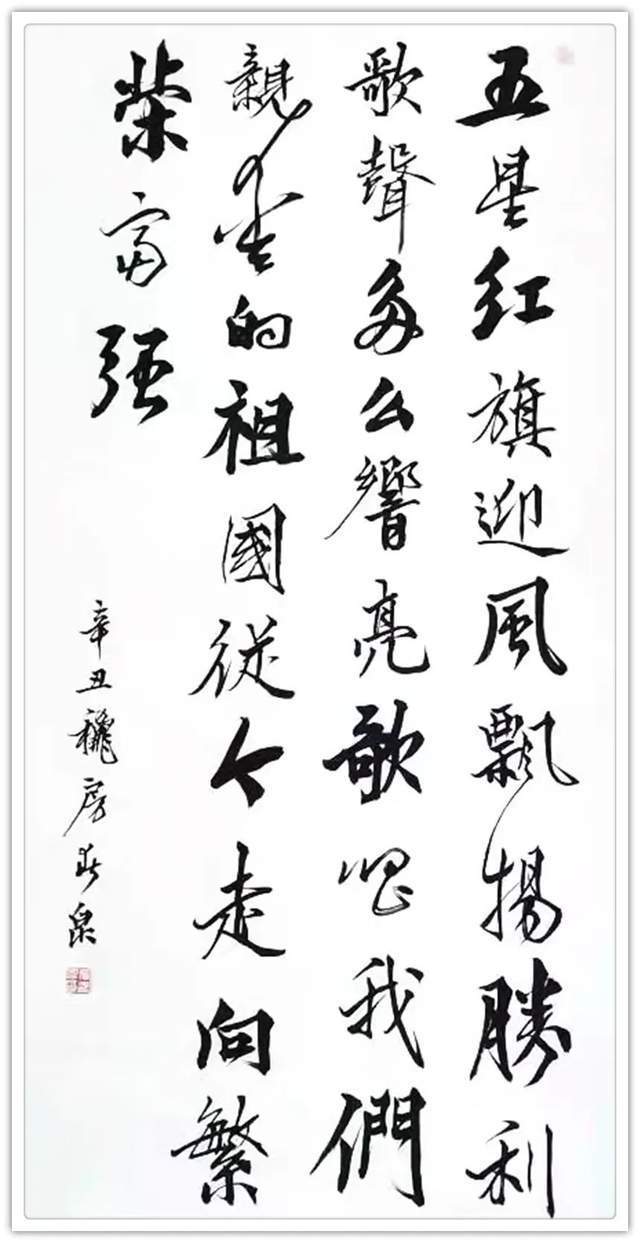 五星红旗迎風飄揚勝利
歌聲多么響亮歌唱我們
親愛的祖國從今走向繁
榮富强
辛丑穐房春泉